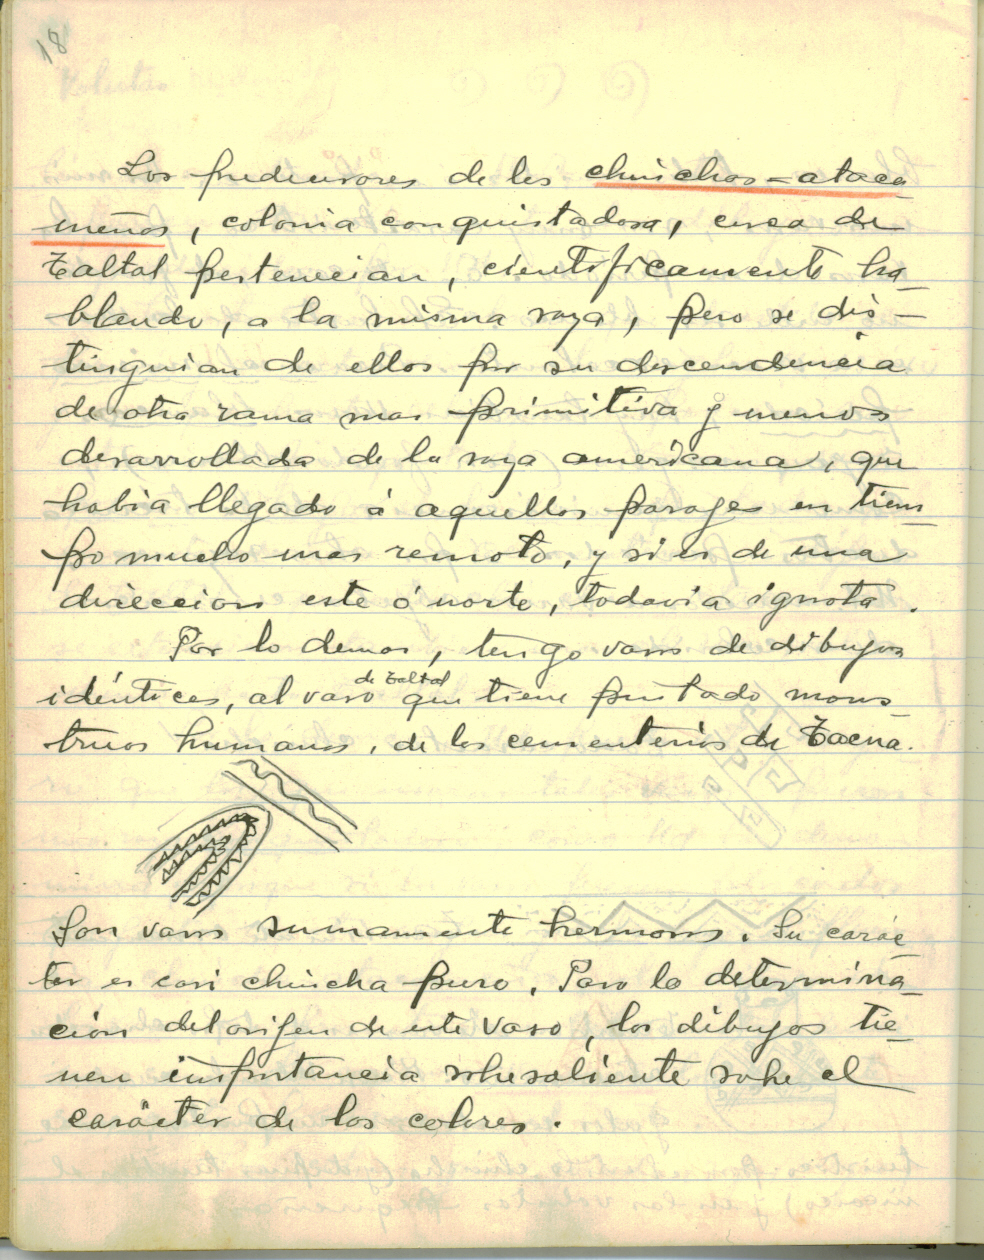 18
Los predecesores de los chinchas-ataca
meños, colonia conquistadora, cerca de
Taltal pertenecian, cientificamente ha_
blando, a la misma raza, pero se dis-
tinguian de ellos por su descendencia
de otra rama mas primitiva y menos
desarrollada de la raza americana, que
habia llegado á aquellos parages en tiem_
po mucho mas remoto, y si es de una
direccion este ó norte, todavia ignota.
Por lo demas, tengo vasos de dibujos
idénticos, al vaso de Taltal que tiene pintado mons_
truos humanos, de los cementerios de Tacna.
Son vasos sumamente hermosos. Su carác_
ter es casi chincha puro. Para la determina_
ción del orijen de este vaso, los dibujos tie_
nen importancia sobresaliente sobre el
carácter de los colores.